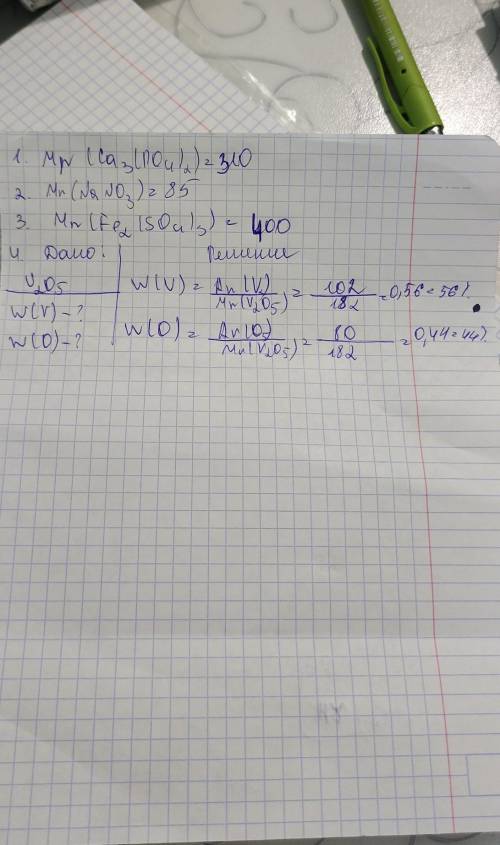 1. Mr (Ca3(PO4)2) = 310
2. Mr (NaNO3) = 85
3. Mr (Fe2(SO4)3) = 400
4. Дано: Решение
V2O5 W(V) = Ar(V)/Mr(V2O5) = 102/182 = 0,56 = 56%.
W(V) - ?
W(O) - ? W(O) = Ar(O)/Mr(V2O5) = 80/182 = 0,44 = 44%.